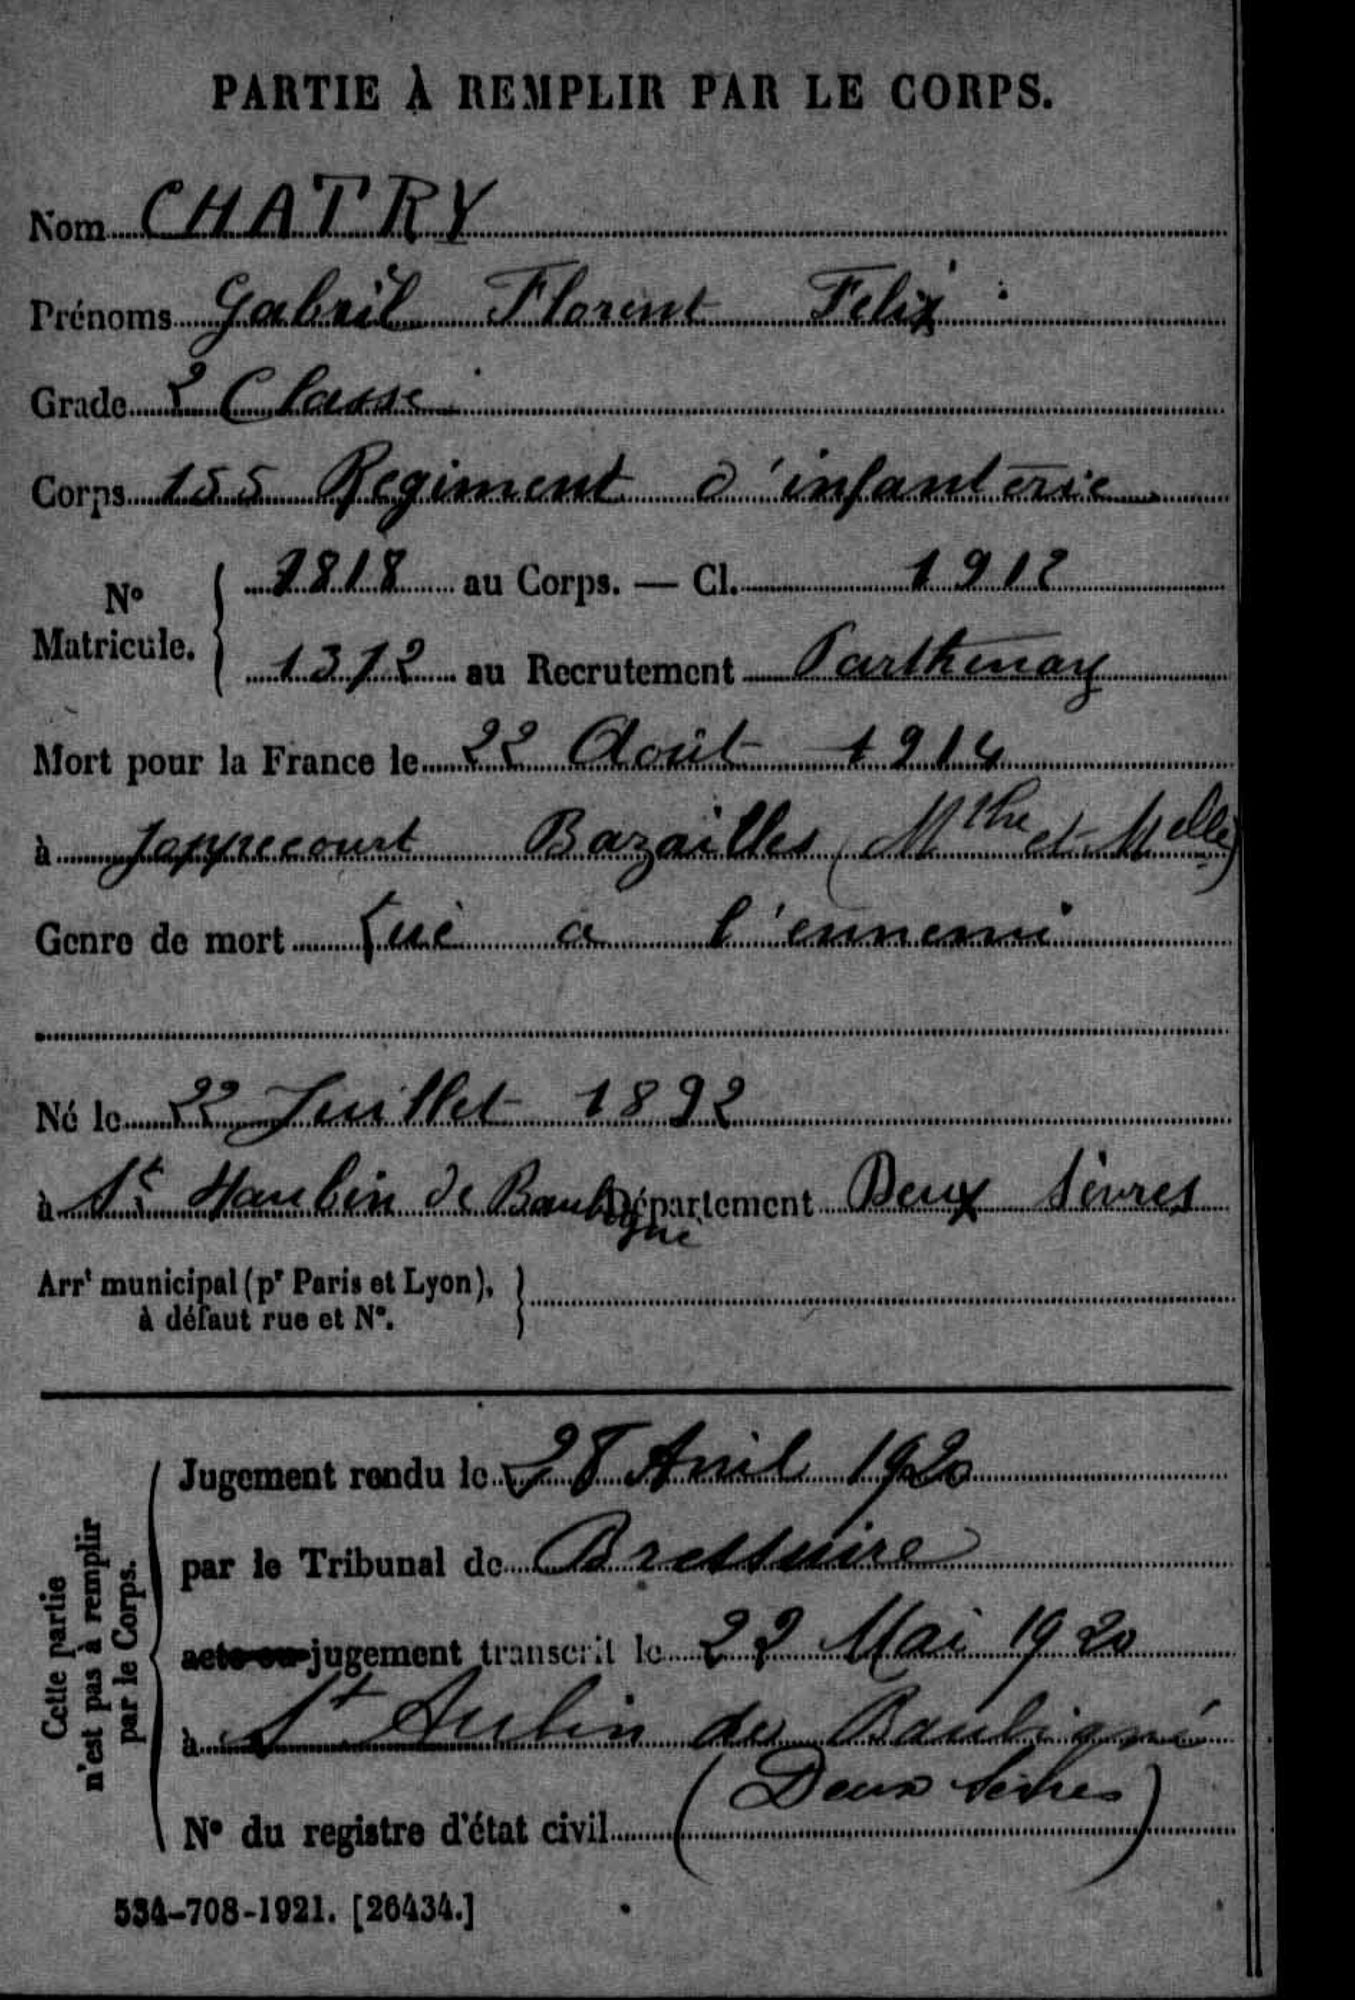 PARTIE À REMPLIR PAR LE CORPS.
Nom CHATRY
Prénoms Gabriel Florent Felix
Grade 2 Classe
Corps 155 Regiment d'infanterie
N° Matricule. { 7818 au Corps. — Cl. 1912
1372 au Recrutement Parthenay
Mort pour la France le 22 Août 1914
à Joppecourt Bazailles (Mthe et Melle)
Genre de mort Tué a l'ennemi
Né le 22 Juillet 1892
à St Haubin de Baubigné Département Deux Sèvres
Arrt municipal (pr Paris et Lyon), à défaut rue et N°. }
Cette partie n'est pas à remplir par le Corps.
Jugement rendu le 28 Avril 1920
par le Tribunal de Bressuire
acte ou jugement transcrit le 22 Mai 1920
à St Aubin de Baubigné
(Deux Sèvres)
N° du registre d'état civil
534-708-1921. [26434.]